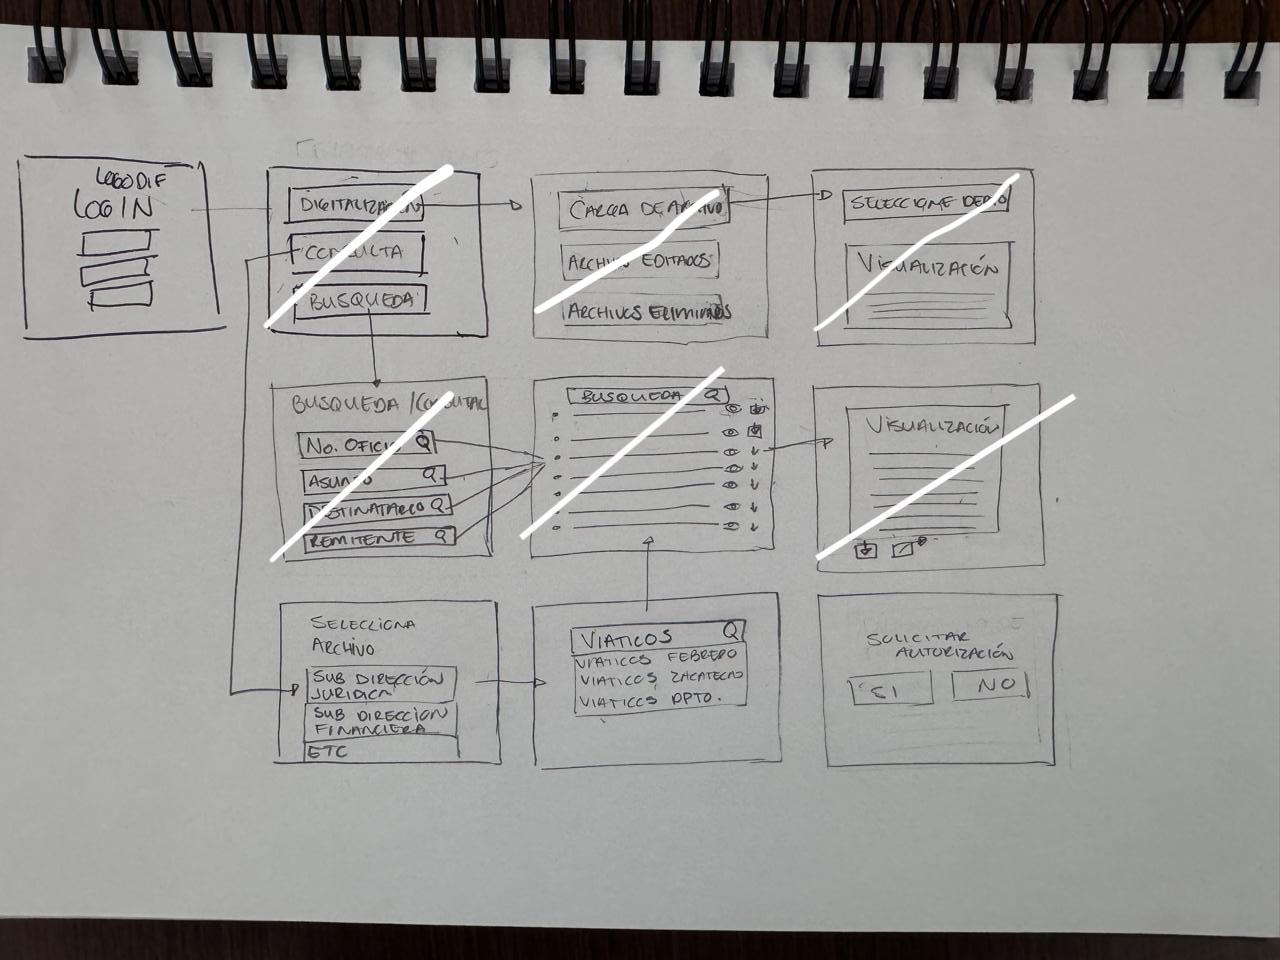 LOGO DIF
LOGIN
DIGITALIZACIÓN
CONSULTA
BUSQUEDA
CARGA DE ARCHIVO
ARCHIVOS EDITADOS
ARCHIVOS ELIMINADOS
SELECCIONE DEPTO
VISUALIZACIÓN
BUSQUEDA / CONSULTA
No. OFICIO
ASUNTO
DESTINATARIO
REMITENTE
BUSQUEDA
VISUALIZACIÓN
SELECCIONA
ARCHIVO
SUB DIRECCIÓN
JURIDICA
SUB DIRECCION
FINANCIERA
ETC
VIATICOS
VIATICOS FEBRERO
VIATICOS ZACATECAS
VIATICOS DPTO.
SOLICITAR
AUTORIZACIÓN
SI
NO